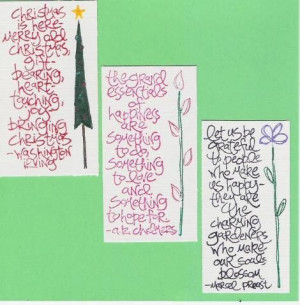 Christmas
is here-
merry old
christmas,
gift-
bearing,
heart-
touching,
joy
bringing
Christmas
-washington
irving
the grand
essentials
of
happiness
are
something
to do,
something
to love
and
something
to hope for
-a.k. chalmers
let us be
grateful
to people
who make
us happy-
they are
the
charming
gardeners
who make
our souls
blossom
-marcel proust